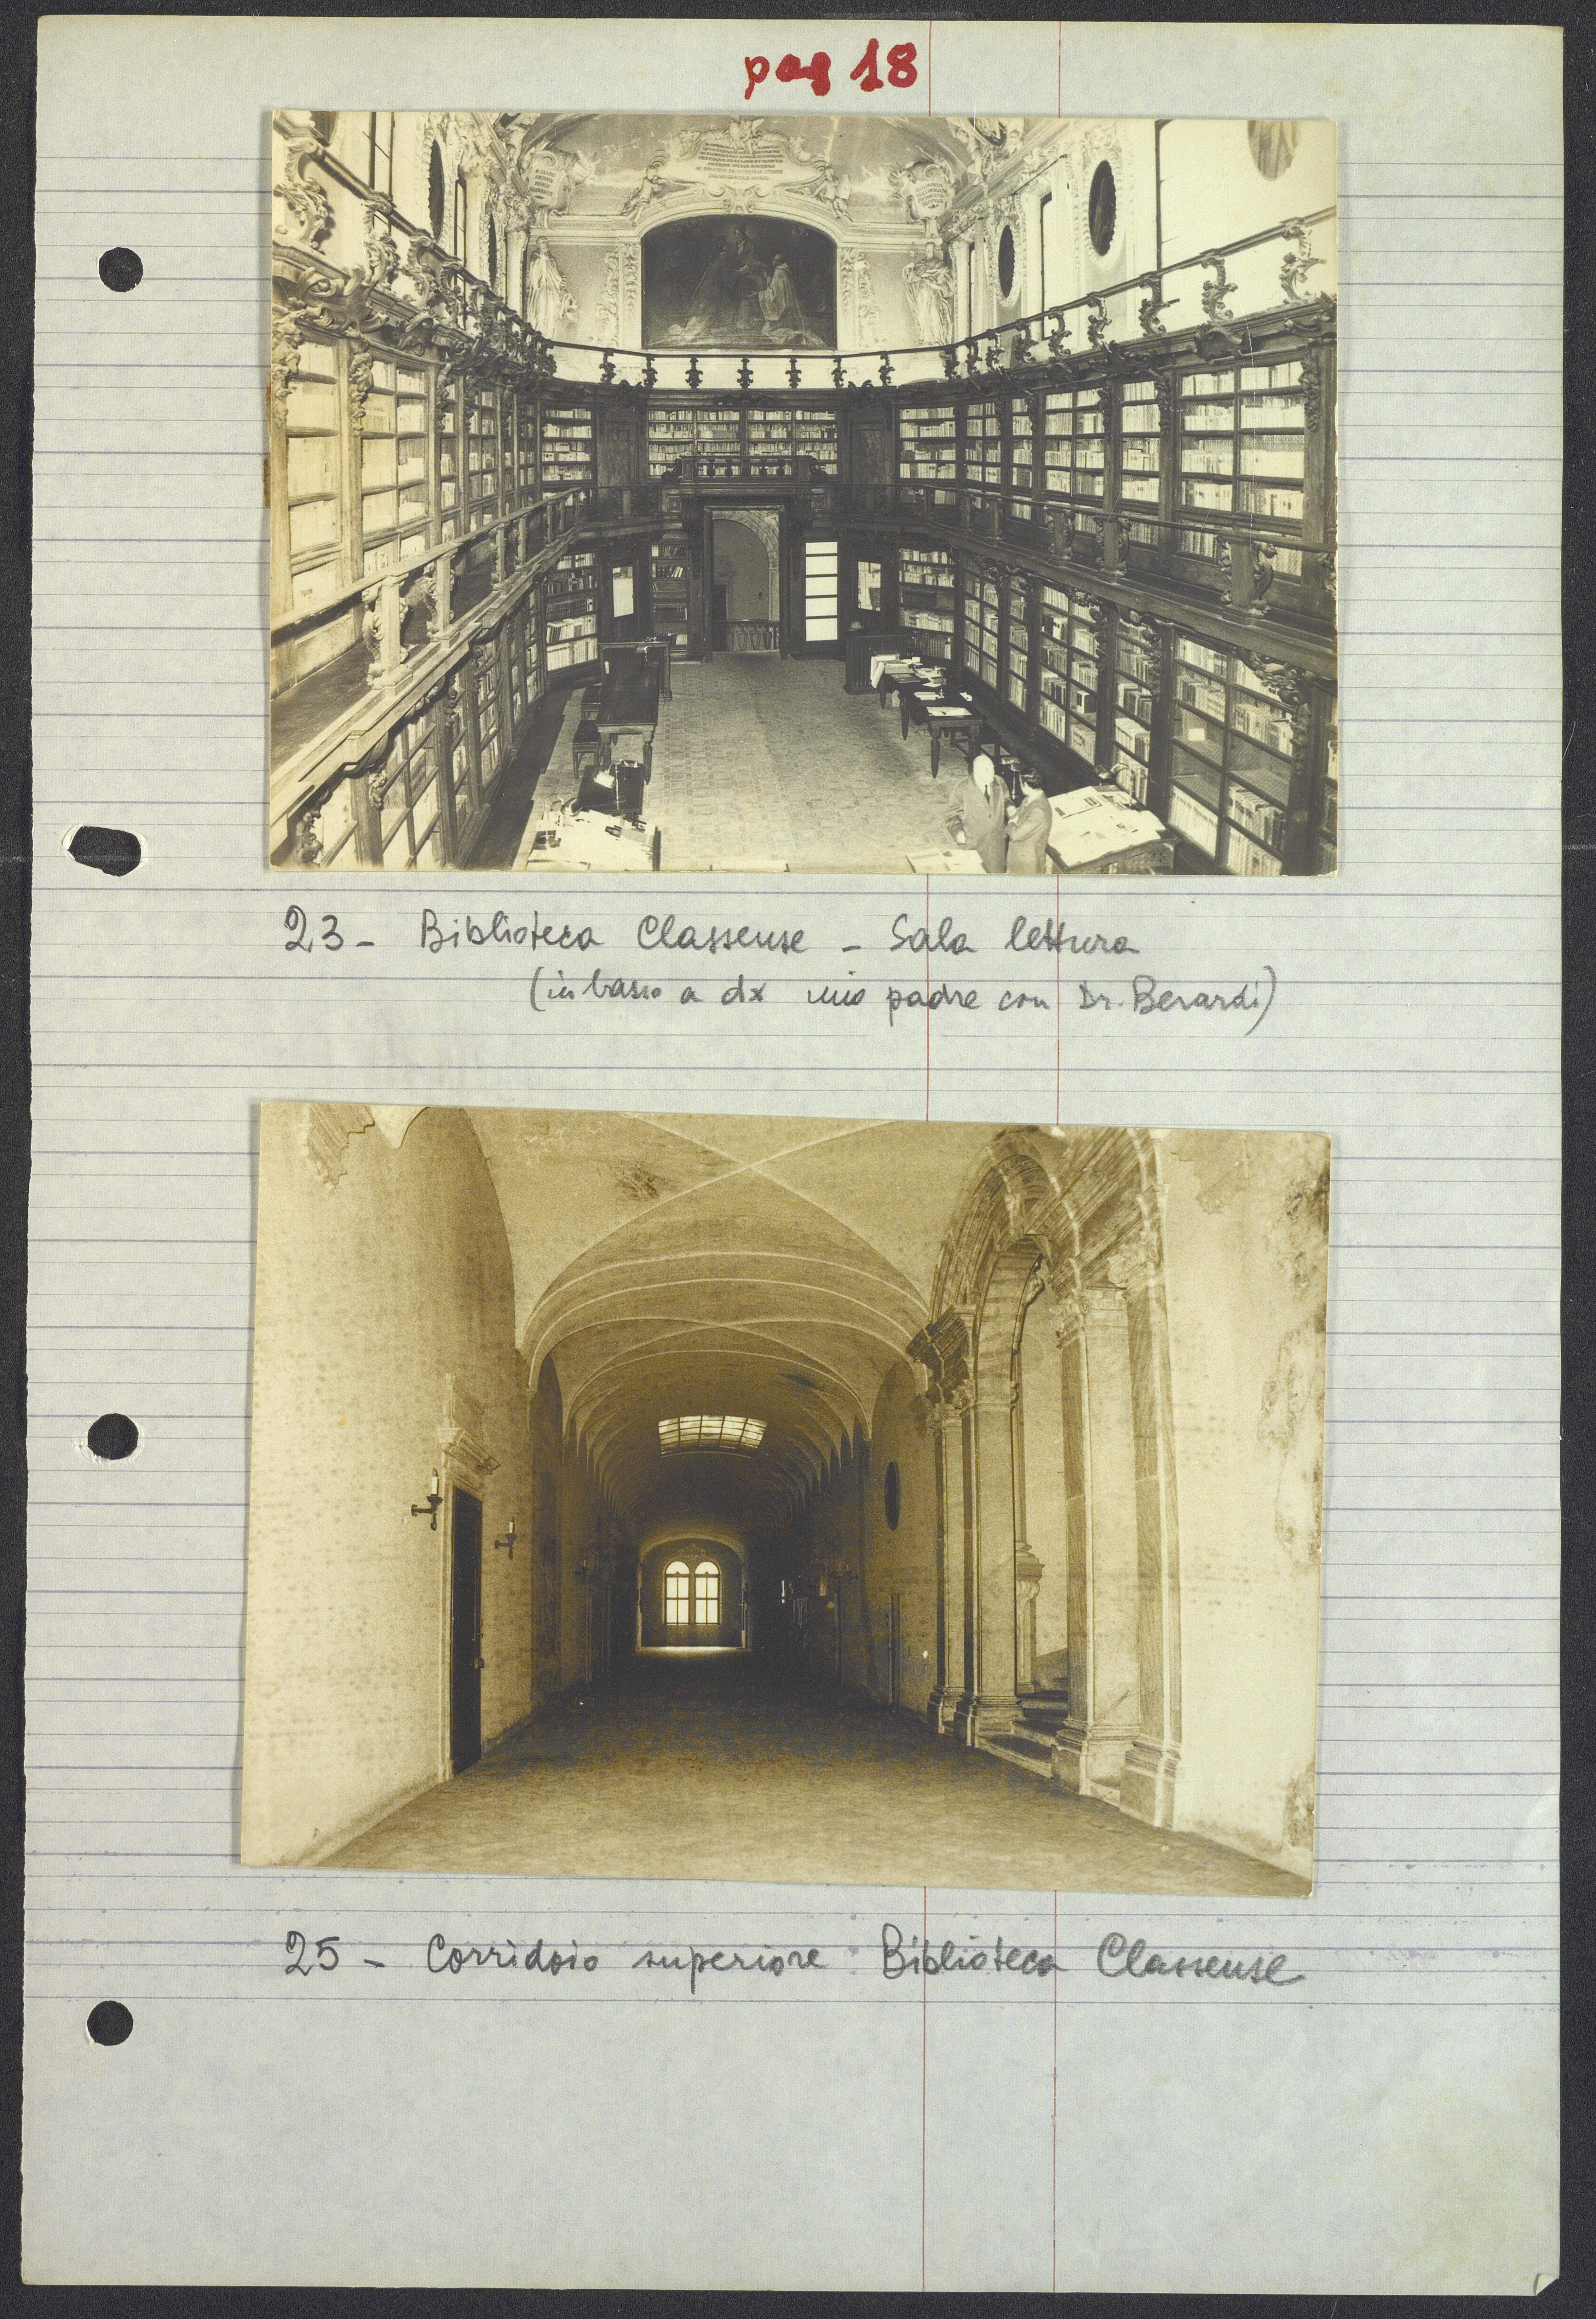 pag 18
23 - Biblioteca Classense - Sala lettura
(in basso a dx mio padre con Dr. Berardi)
25 - Corridoio superiore Biblioteca Classense